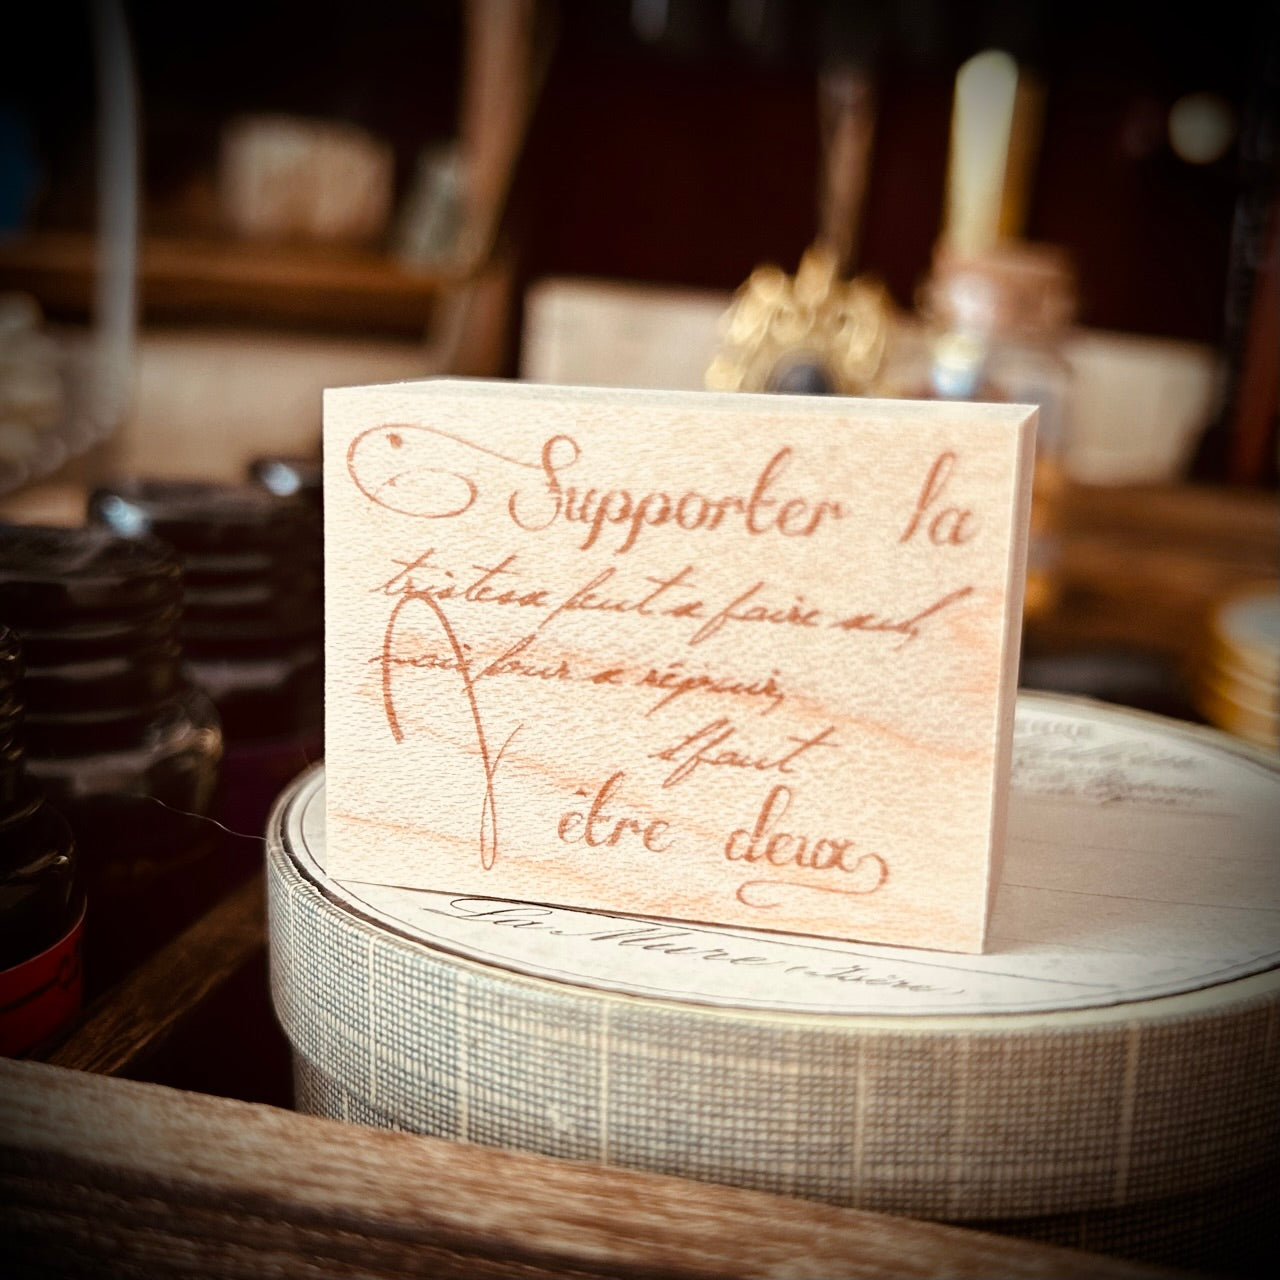 Supporter la
tristesse peut se faire seul,
mais pour se réjouir,
il faut
être deux
La Mure (Isère)